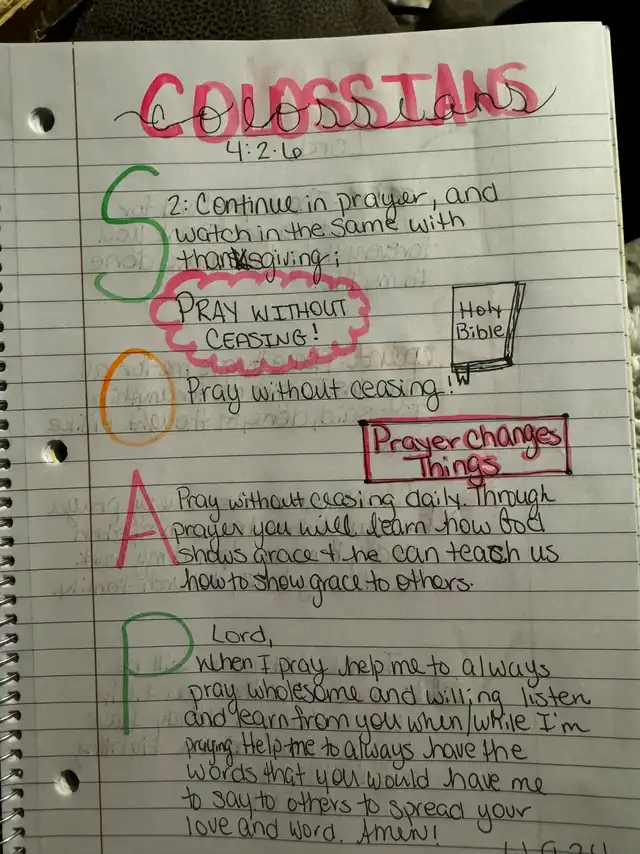 COLOSSIANS
colossians
4:2-6
S
2: Continue in prayer, and
watch in the same with
thanksgiving;
PRAY WITHOUT
CEASING!
Holy
Bible
O
Pray without ceasing!
Prayer Changes
Things
A
Pray without ceasing daily. Through
prayer you will learn how God
shows grace & he can teach us
how to show grace to others.
P
Lord,
When I pray help me to always
pray wholesome and willing listen
and learn from you when/while I'm
praying. Help me to always have the
words that you would have me
to say to others to spread your
love and word. Amen!